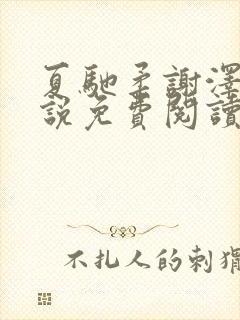 夏馳柔謝澤
說免費閱讀
不扎人的刺猬